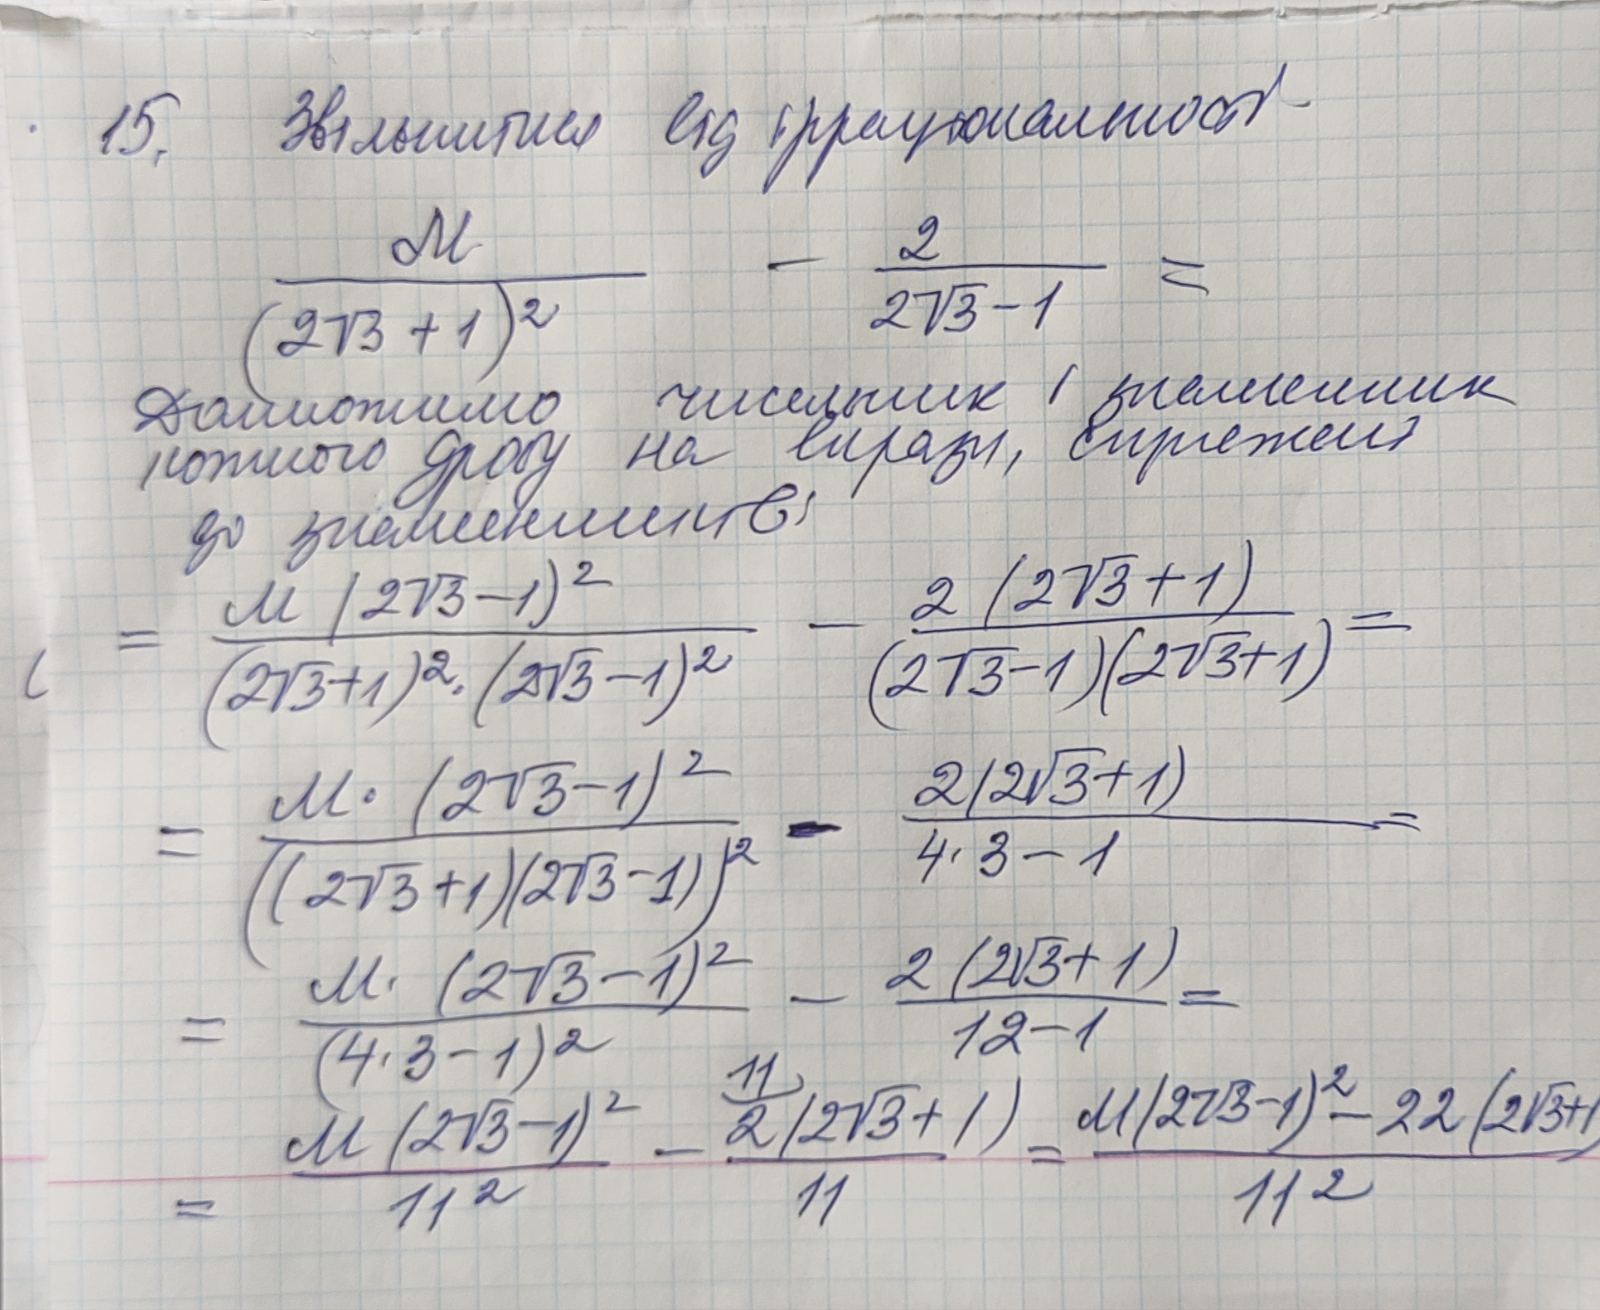 15. Звільнитися від ірраціональності
M/(2√3 + 1)² - 2/(2√3 - 1) =
Домножимо чисельник і знаменник
кожного дробу на вирази, спряжені
до знаменників
= M(2√3 - 1)²/((2√3+1)²·(2√3 - 1)²) - 2(2√3 + 1)/((2√3 - 1)(2√3+1)) =
= M·(2√3 - 1)²/((2√3+1)(2√3 - 1))² - 2(2√3+1)/(4·3 - 1) =
= M·(2√3 - 1)²/(4·3 - 1)² - 2(2√3+1)/(12 - 1) =
= M(2√3 - 1)²/11² - 11/2(2√3+1)/11 = (M(2√3 - 1)² - 22(2√3+1)/11²